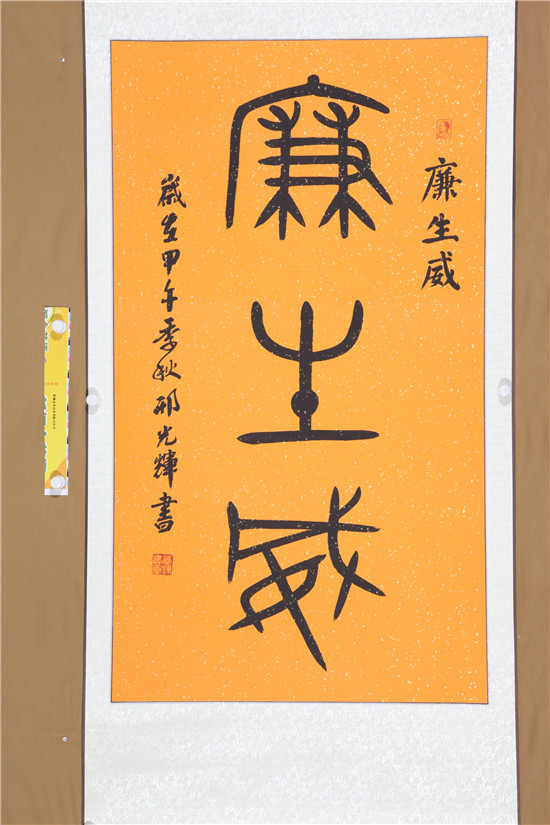 廉生威
廉生威
歲在甲午季秋邢光輝書